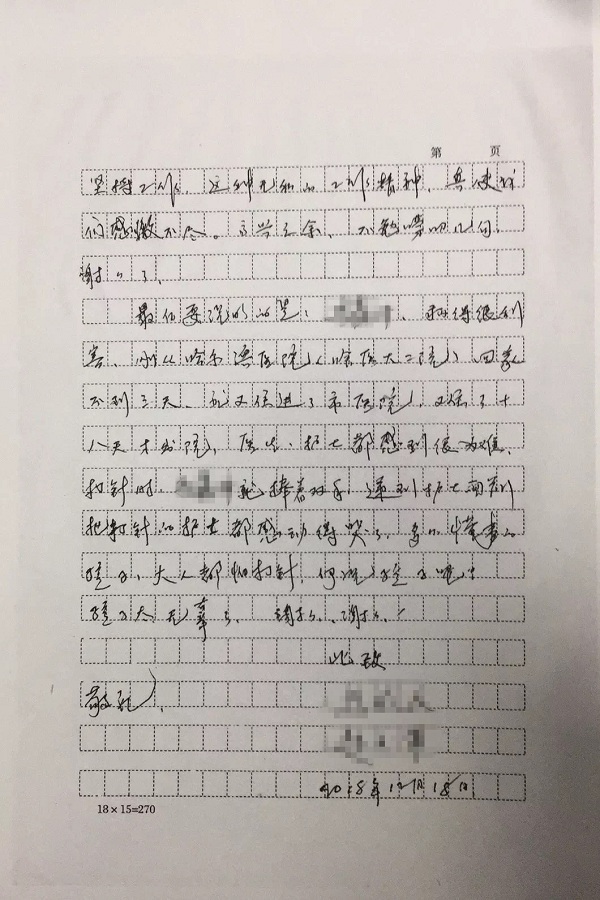 第 页
坚持工作。这种无私的工作精神,真使我
们感激不尽。高兴之余,不勉啰嗦几句,
谢谢了。
最后要说的是, 病得很利
害,刚从哈尔滨医院(哈医大二院)回家
不到三天,就又住进了市医院,又住了十
八天才出院,医生、护士都感到很为难,
打针时, 就捧着双手递到护士面前
把打针的护士都感动得哭了,多么懂事的
孩子,大人都怕打针,何况孩子呢!
孩子太无辜了, 谢谢、谢谢!
此致
敬礼!
2018年12月18日
18×15=270